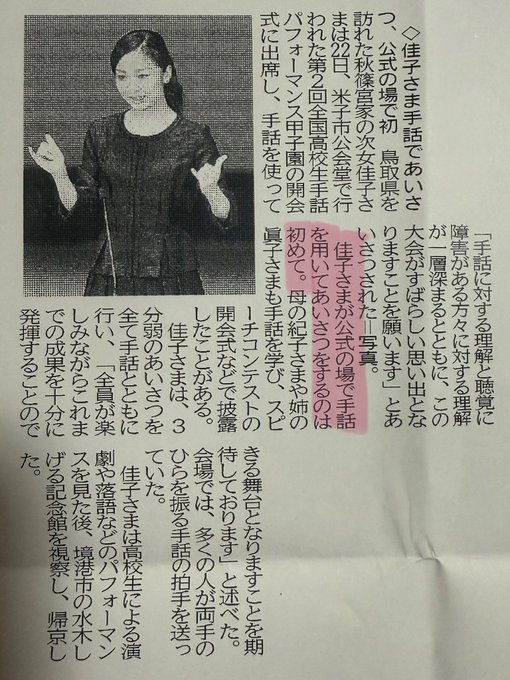 ◇佳子さま手話であいさ
つ、公式の場で初　鳥取県を
訪れた秋篠宮家の次女佳子さ
まは22日、米子市公会堂で行
われた第２回全国高校生手話
パフォーマンス甲子園の開会
式に出席し、手話を使って
「手話に対する理解と聴覚に
障害がある方々に対する理解
が一層深まるとともに、この
大会がすばらしい思い出とな
りますことを願います」とあ
いさつされた＝写真。
佳子さまが公式の場で手話
を用いてあいさつをするのは
初めて。母の紀子さまや姉の
眞子さまも手話を学び、スピ
ーチコンテストの
開会式などで披露
したことがある。
佳子さまは、３
分弱のあいさつを
全て手話とともに
行い、「全員が楽
しみながらこれま
での成果を十分に
発揮することので
きる舞台となりますことを期
待しております」と述べた。
会場では、多くの人が両手の
ひらを振る手話の拍手を送っ
ていた。
佳子さまは高校生による演
劇や落語などのパフォーマン
スを見た後、境港市の水木し
げる記念館を視察し、帰京し
た。